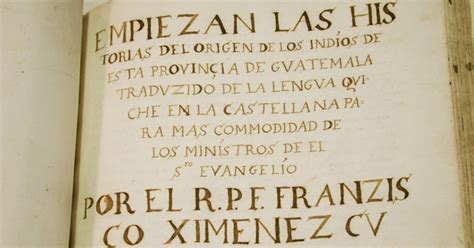 EMPIEZAN LAS HIS
TORIAS DEL ORIGEN DE LOS INDIOS DE
ESTA PROVINCIA DE GUATEMALA
TRADUZIDO DE LA LENGUA QUI
CHE EN LA CASTELLANA PA
RA MAS COMMODIDAD DE
LOS MINISTROS DE EL
Sto EVANGELIO
POR EL R.P.F. FRANZIS
CO XIMENEZ CU